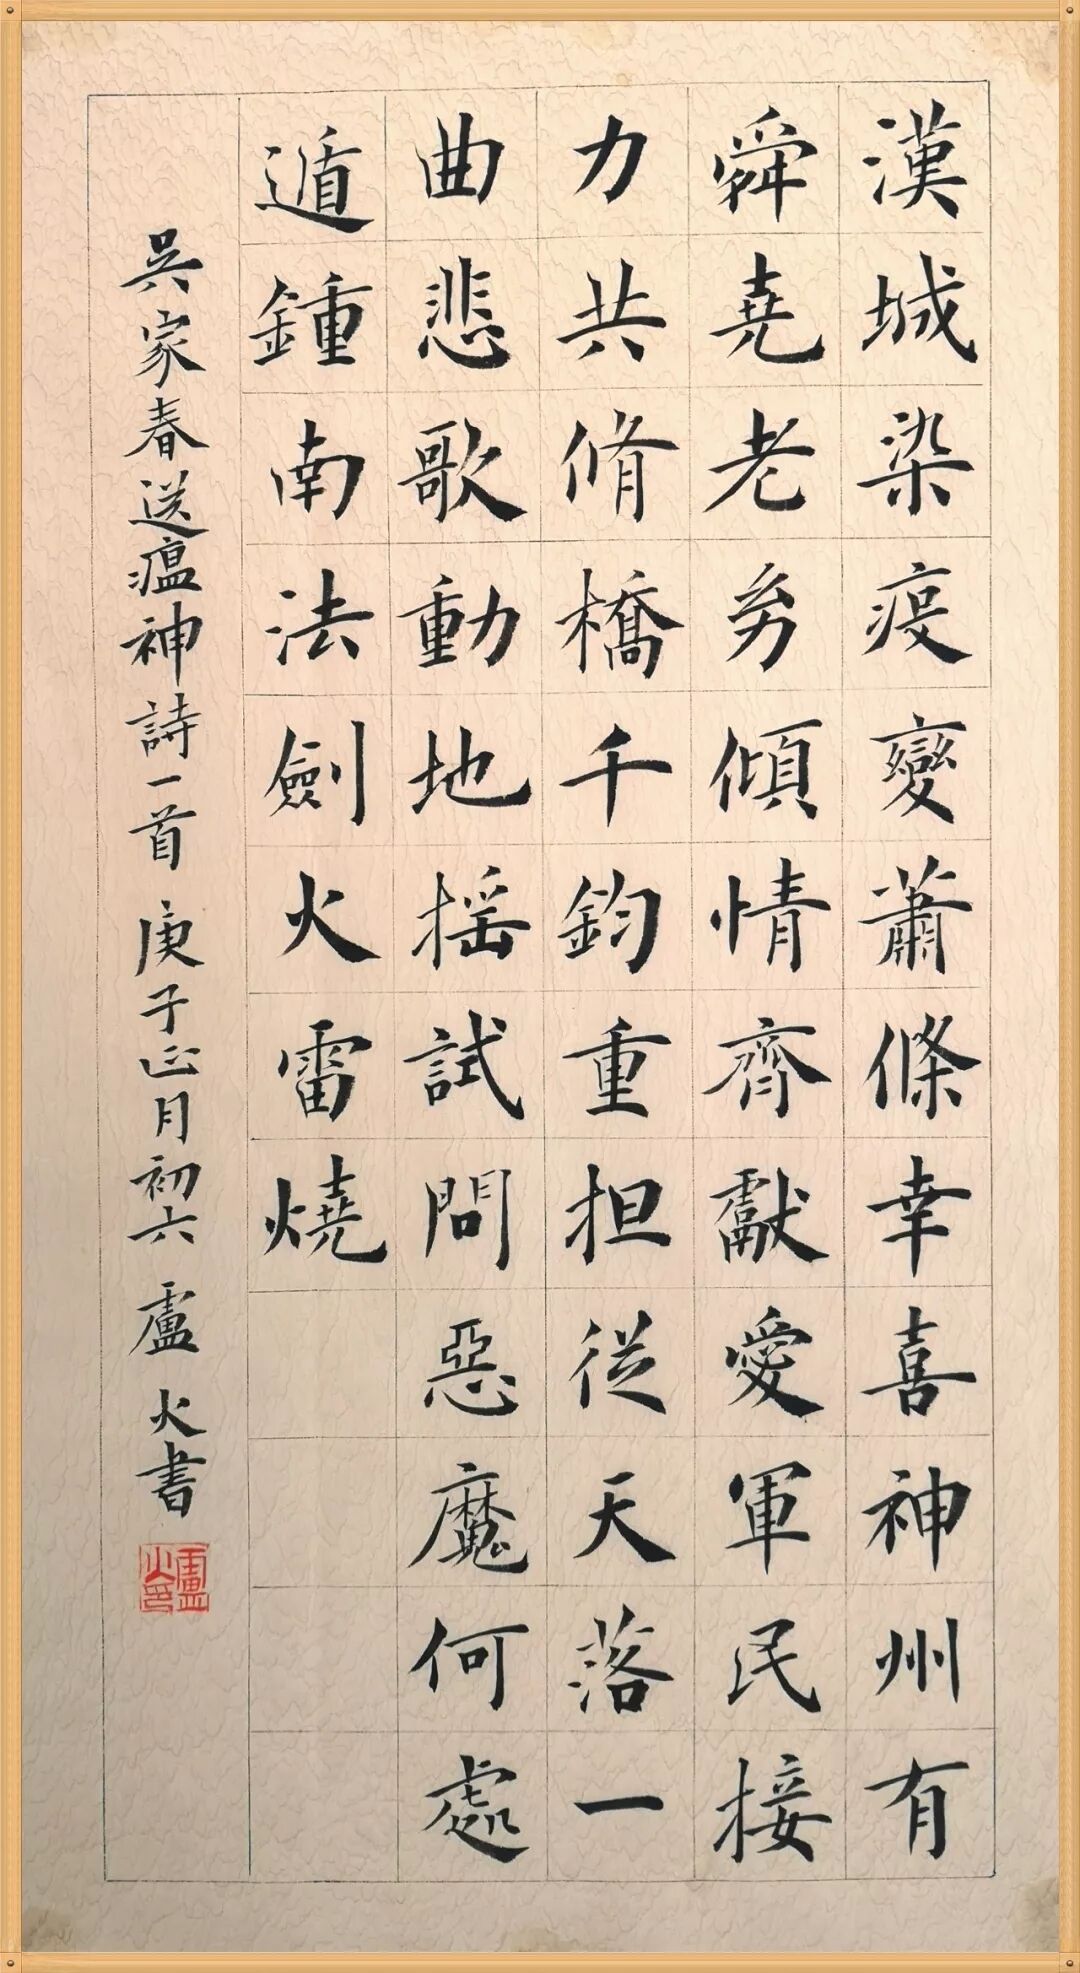 漢城染疫變蕭條幸喜神州有
舜堯老㓜傾情齊獻愛軍民接
力共脩橋千鈞重担從天落一
曲悲歌動地摇試問惡魔何處
遁鍾南法劍火雷燒
吳家春送瘟神詩一首 庚子正月初六 盧火書
盧火印